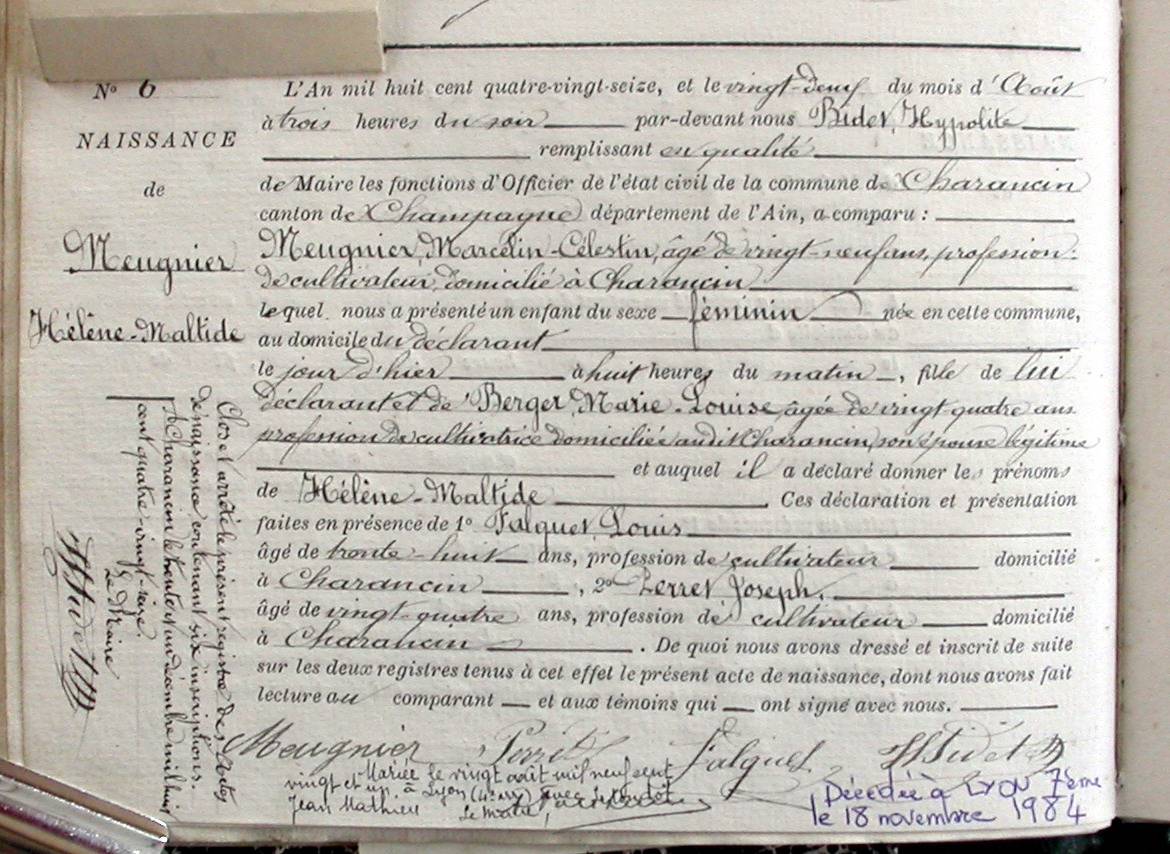 N° 6
NAISSANCE
de
Meugnier
Hélène-Maltide
L'An mil huit cent quatre-vingt-seize, et le vingt-deux du mois d'Août
à trois heures du soir par-devant nous Bidet, Hypolite
remplissant en qualité
de Maire les fonctions d'Officier de l'état civil de la commune de Charancin
canton de Champagne département de l'Ain, a comparu :
Meugnier, Marcelin-Célestin, âgé de vingt-neuf ans, profession
de cultivateur, domicilié à Charancin
lequel nous a présenté un enfant du sexe féminin née en cette commune,
au domicile du déclarant
le jour d'hier à huit heures du matin, fille de lui
déclarant et de Berger, Marie-Louise, âgée de vingt quatre ans
profession de cultivatrice domiciliée audit Charancin, son épouse légitime
et auquel il a déclaré donner les prénoms
de Hélène-Maltide Ces déclaration et présentation
faites en présence de 1° Falquet, Louis
âgé de trente-huit ans, profession de cultivateur domicilié
à Charancin, 2° Perret Joseph,
âgé de vingt-quatre ans, profession de cultivateur domicilié
à Charancin. De quoi nous avons dressé et inscrit de suite
sur les deux registres tenus à cet effet le présent acte de naissance, dont nous avons fait
lecture au comparant et aux témoins qui ont signé avec nous.
Meugnier Perret Falquet HBidet
Clos et arrêté le présent registre des actes
de naissance contenant six inscriptions.
à Charancin le trente et un décembre mil huit
cent quatre-vingt-seize.
Le Maire
HBidet
Mariée le vingt août mil neuf cent
vingt et un à Lyon (4e arr) avec
Jean Mathieu Le Maire,
Décédée à LYON 7ème
le 18 novembre 1984